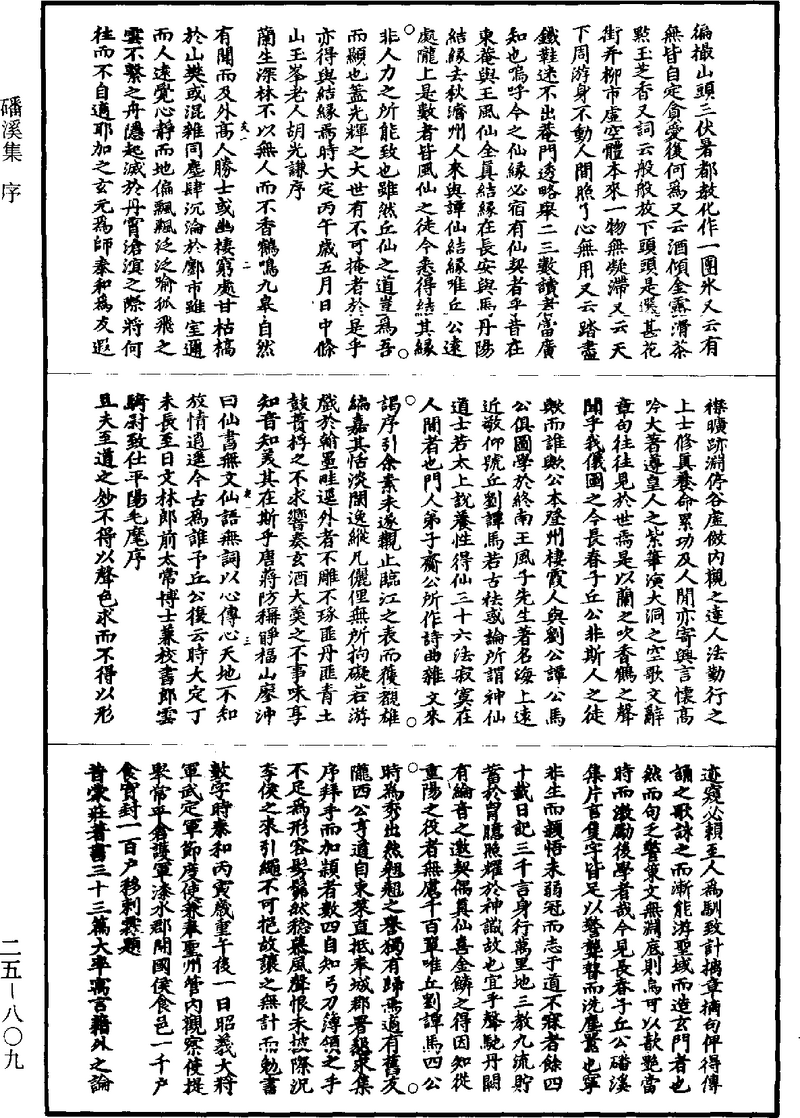 磻溪集 序
二五—八〇九
徧撮山頭三伏暑都教化作一團氷又云有
無皆自定貪愛後何為又云酒傾金露滑茶
點玉芝香又詞云般般放下頭頭是選甚花
街并柳市虛空體本來一物無凝滯又云天
下周游身不動人間照了心無用又云踏盡
鐵鞋迷不出番門透略舉二三數讀者當廣
知也嗚呼今之仙緣必宿有仙契者乎昔在
東菴與王風仙全真結緣在長安與馬丹陽
結緣去秋濟州人來與譚仙結緣唯丘公遠
處隴上是數者皆風仙之徒今悉得結其緣
非人力之所能致也雖然丘仙之道豈為吾
而顯也蓋光輝之大世有不可掩者於是乎
亦得與結緣焉時大定丙午歲五月日中條
山玉峯老人胡光謙序
蘭生深林不以無人而不香鶴鳴九皐自然
有聞而及外高人勝士或幽棲窮處甘枯槁
於山樊或混雜同塵肆沉淪於鄽市雖室邇
而人遠覺心靜而地偏飄飄泛泛喻孤飛之
雲不繫之舟隱起滅於丹霄滄溟之際將何
往而不自適耶加之玄元為師泰和為友遐
襟曠跡淵停谷虛倣內觀之達人法勤行之
上士修真養命累功及人間亦寄興言懷高
吟大著遵皇人之紫筆演大洞之空歌文辭
章句往往見於世焉是以蘭之吹香鶴之聲
聞乎我儀圖之今長春子丘公非斯人之徒
歟而誰歟公本登州棲霞人與劉公譚公馬
公俱圖學於終南王風子先生著名海上遠
近敬仰號丘劉譚馬若古祛或論所謂神仙
道士若太上說養性得仙三十六法寂寞在
人間者也門人弟子齎公所作詩曲雜文來
謁序引余素未遂觀止臨江之表而獲覩雄
編嘉其恬淡閑逸縱凡儷俚無所拘礙若游
戲於翰墨畦逕外者不雕不琢匪丹匪青土
鼓蕢桴之不求響奏玄酒大羹之不事味享
知音知美其在斯乎唐蔣防稱睜福山廖沖
曰仙書無文仙語無詞以心傳心天地不知
放情逍遥今古為誰予丘公復云時大定丁
未長至日文林郎前太常博士兼校書郎雲
騎尉致仕平陽毛麾序
且夫至道之妙不得以聲色求而不得以形
迹窺必賴至人為馴致計摛章摘句俾得傳
誦之歌詠之而漸能游聖域而造玄門者也
然而句乏警策文無淵底則烏可以歆艷當
時而激勵後學者哉今見長春子丘公磻溪
集片言隻字皆足以警聾瞽而洗塵囂也寧
非生而穎悟未弱冠而志于道不寐者餘四
十載日記三千言身行萬里地三教九流貯
蓄於胷臆照耀於神識故也宜乎聲馳丹闕
有綸音之邀契偶真仙喜金鱗之得因知從
重陽之役者無慮千百輩唯丘劉譚馬四公
時為秀出然翹翹之譽獨有歸焉適有舊友
隴西公亨道自東萊直抵奉城郡署懇求集
序拜手而加顙者數四自知弓刀簿領之手
不足為形容髣髴然稔慕風聲恨未披際況
李侯之來引繩不可把故讓之無計而勉書
數字時泰和丙寅歲重午後一日昭義大將
軍武定軍節度使兼奉聖州管內觀察使提
舉常平倉護軍漆水郡開國侯食邑一千戶
食實封一百戶移剌霖題
昔蒙莊著書三十三篇大率寓言藉外之論